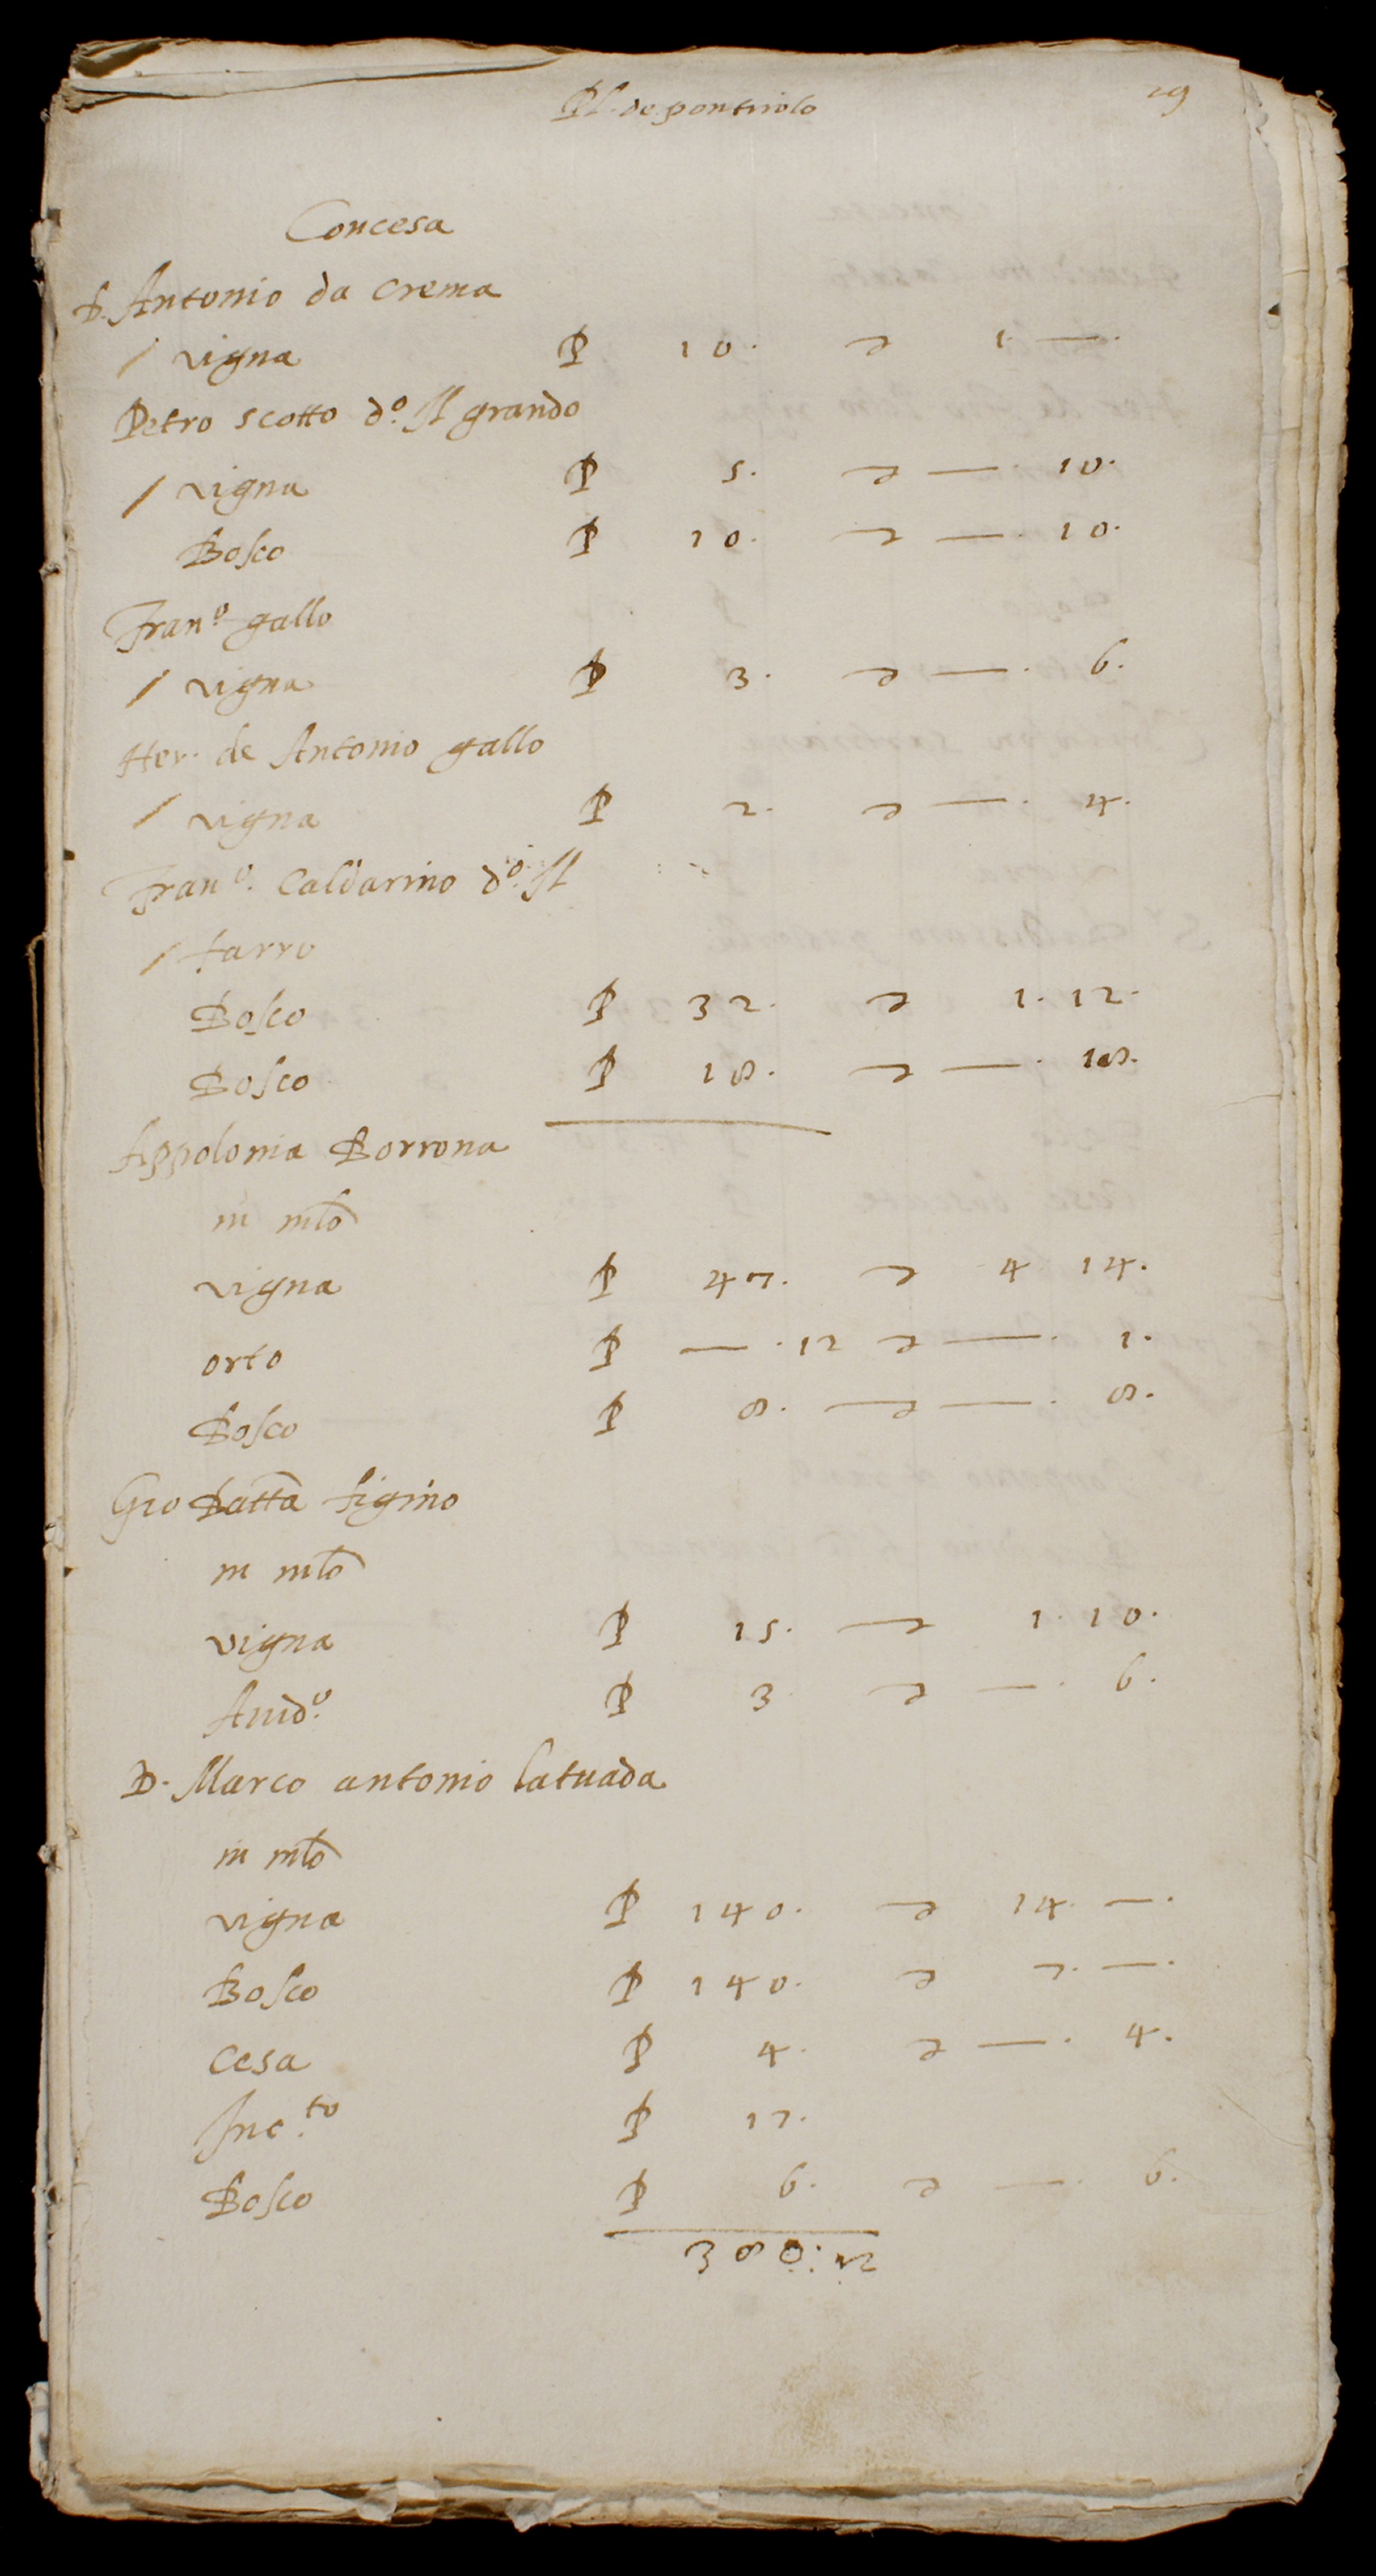 Pl. de pontirolo 29
Concesa
D. Antonio da Crema
/ vigna P 10. d 1. —.
Petro scotto d.º Il grando
/ vigna P 5. d —. 10.
Bosco P 10. d —. 10.
Fran.º gallo
/ vigna P 3. d —. 6.
Her. de Antonio gallo
/ vigna P 2. d —. 4.
Fran.º Caldarino d.º Il
/ farro
Bosco P 32. d 1. 12.
Bosco P 18. d —. 18.
Appolonia Borrona
in mto
vigna P 47. d 4 14.
orto P —. 12 d —. 1.
Bosco P 8. d —. 8.
Gio Batta figino
in mto
vigna P 15. d 1. 10.
Auid.º P 3 d —. 6.
D. Marco antonio latuada
in mto
vigna P 140. d 14. —.
Bosco P 140. d 7. —.
Cesa P 4. d —. 4.
Inc.to P 17.
Bosco P 6. d —. 6.
380: